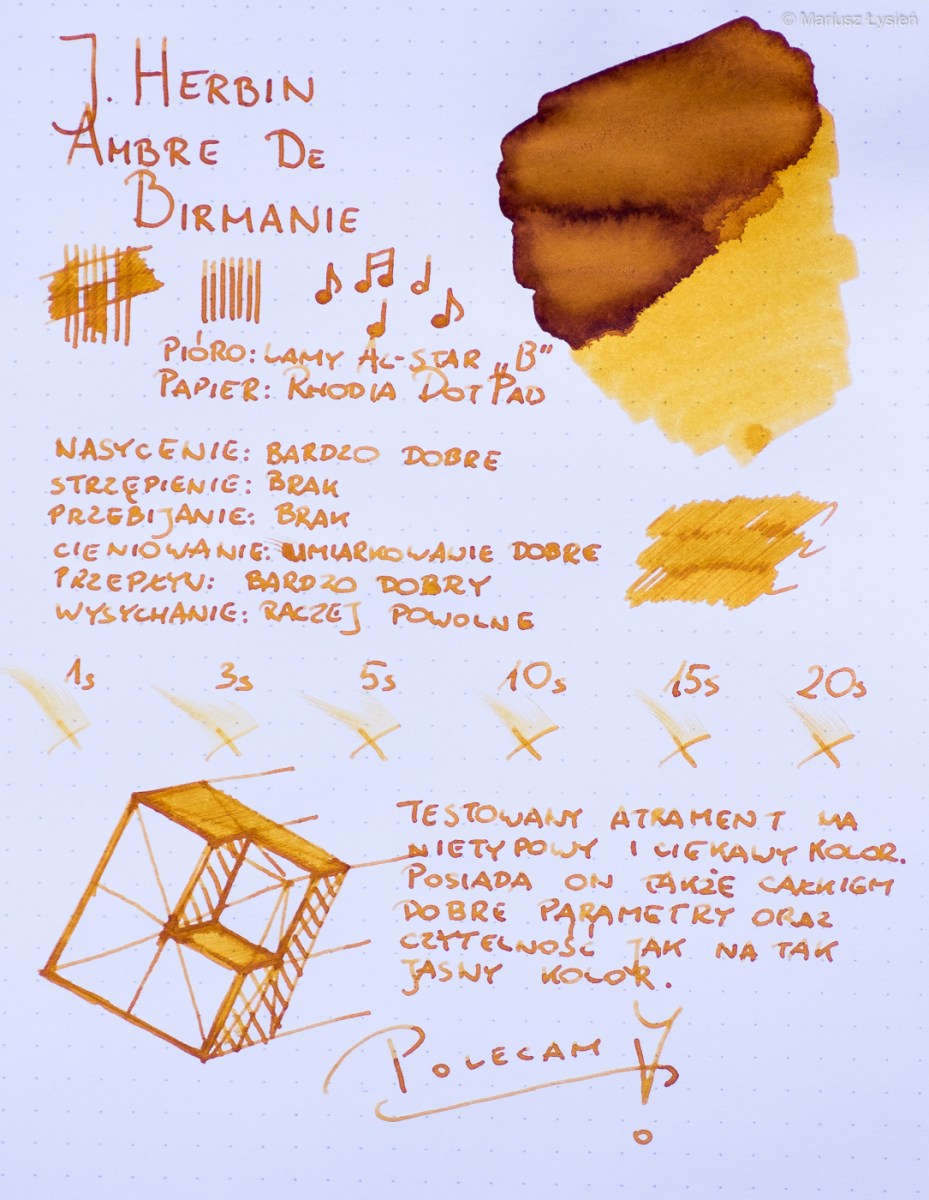 © Mariusz Łysień
J. HERBIN
AMBRE DE
BIRMANIE
PIÓRO: LAMY AL-STAR „B”
PAPIER: RHODIA DOTPAD
NASYCENIE: BARDZO DOBRE
STRZĘPIENIE: BRAK
PRZEBIJANIE: BRAK
CIENIOWANIE: UMIARKOWANIE DOBRE
PRZEPŁYW: BARDZO DOBRY
WYSYCHANIE: RACZEJ POWOLNE
1s 3s 5s 10s 15s 20s
TESTOWANY ATRAMENT MA
NIETYPOWY I CIEKAWY KOLOR.
POSIADA ON TAKŻE CAŁKIEM
DOBRE PARAMETRY ORAZ
CZYTELNOŚĆ JAK NA TAK
JASNY KOLOR.
POLECAM!